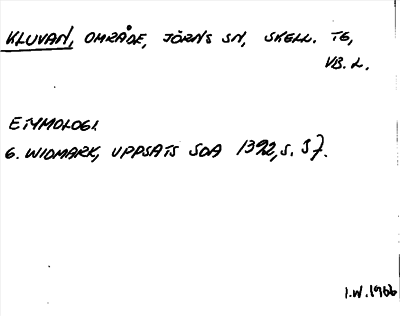 KLUVAN, OMRÅDE, JÖRNS SN, SKELL. TG,
VB. L.
ETYMOLOGI.
G. WIDMARK, UPPSATS SOA 1392, s. 37.
I.W. 1966